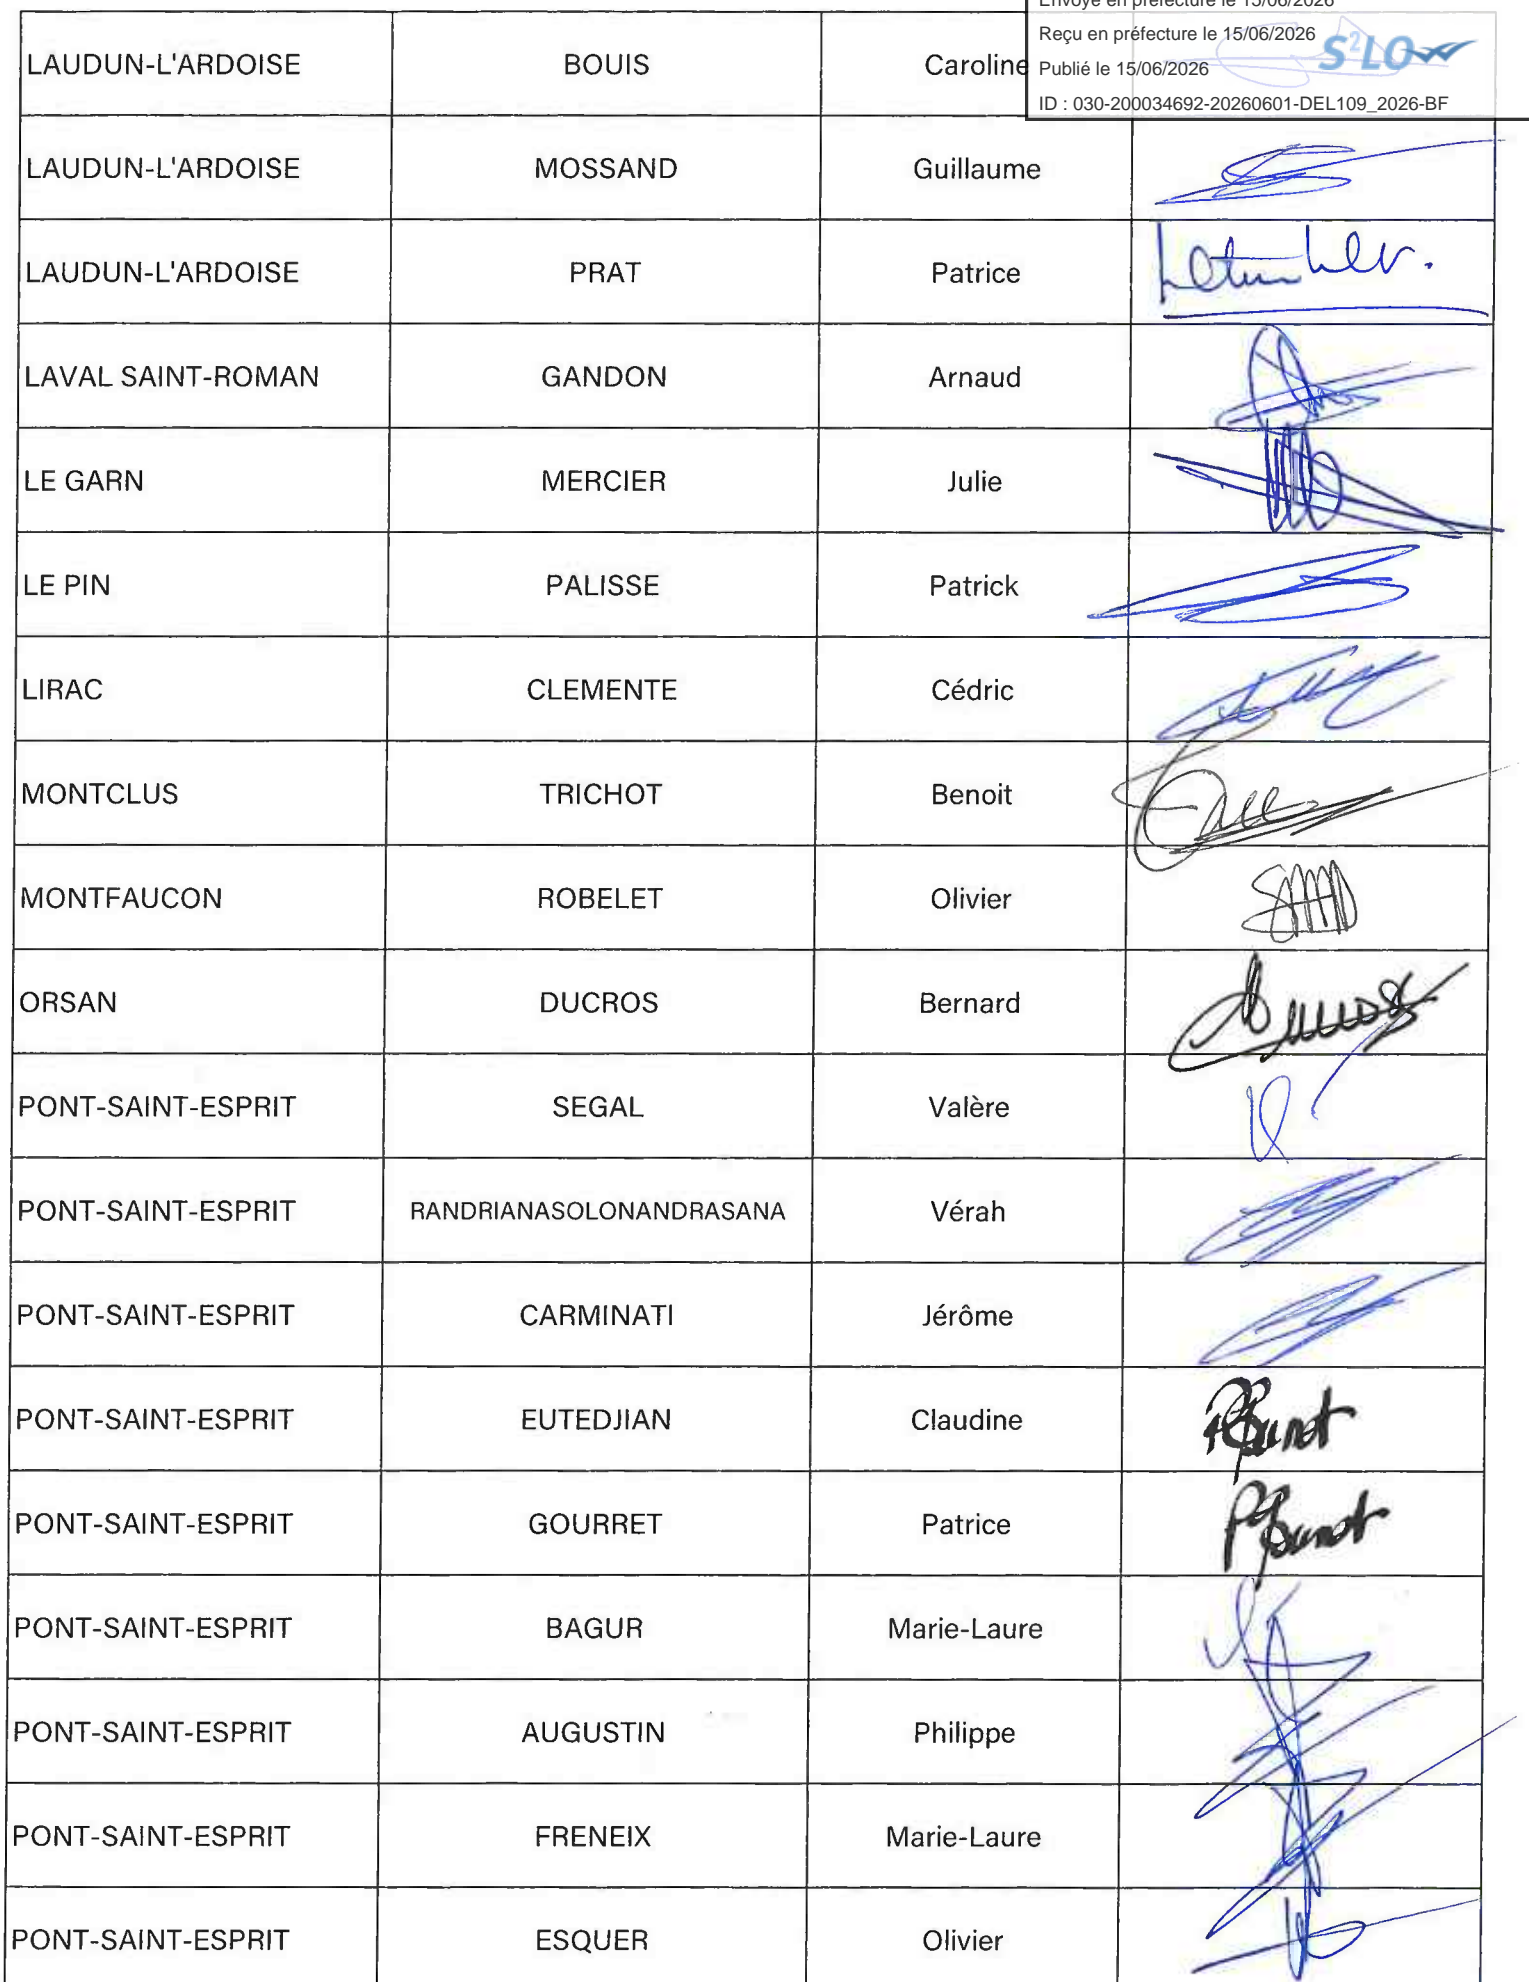 Envoyé en préfecture le 15/06/2026
Reçu en préfecture le 15/06/2026
Publié le 15/06/2026
S²LO
ID : 030-200034692-20260601-DEL109_2026-BF
LAUDUN-L'ARDOISE BOUIS Caroline
LAUDUN-L'ARDOISE MOSSAND Guillaume
LAUDUN-L'ARDOISE PRAT Patrice
LAVAL SAINT-ROMAN GANDON Arnaud
LE GARN MERCIER Julie
LE PIN PALISSE Patrick
LIRAC CLEMENTE Cédric
MONTCLUS TRICHOT Benoit
MONTFAUCON ROBELET Olivier
ORSAN DUCROS Bernard
PONT-SAINT-ESPRIT SEGAL Valère
PONT-SAINT-ESPRIT RANDRIANASOLONANDRASANA Vérah
PONT-SAINT-ESPRIT CARMINATI Jérôme
PONT-SAINT-ESPRIT EUTEDJIAN Claudine
PONT-SAINT-ESPRIT GOURRET Patrice
PONT-SAINT-ESPRIT BAGUR Marie-Laure
PONT-SAINT-ESPRIT AUGUSTIN Philippe
PONT-SAINT-ESPRIT FRENEIX Marie-Laure
PONT-SAINT-ESPRIT ESQUER Olivier